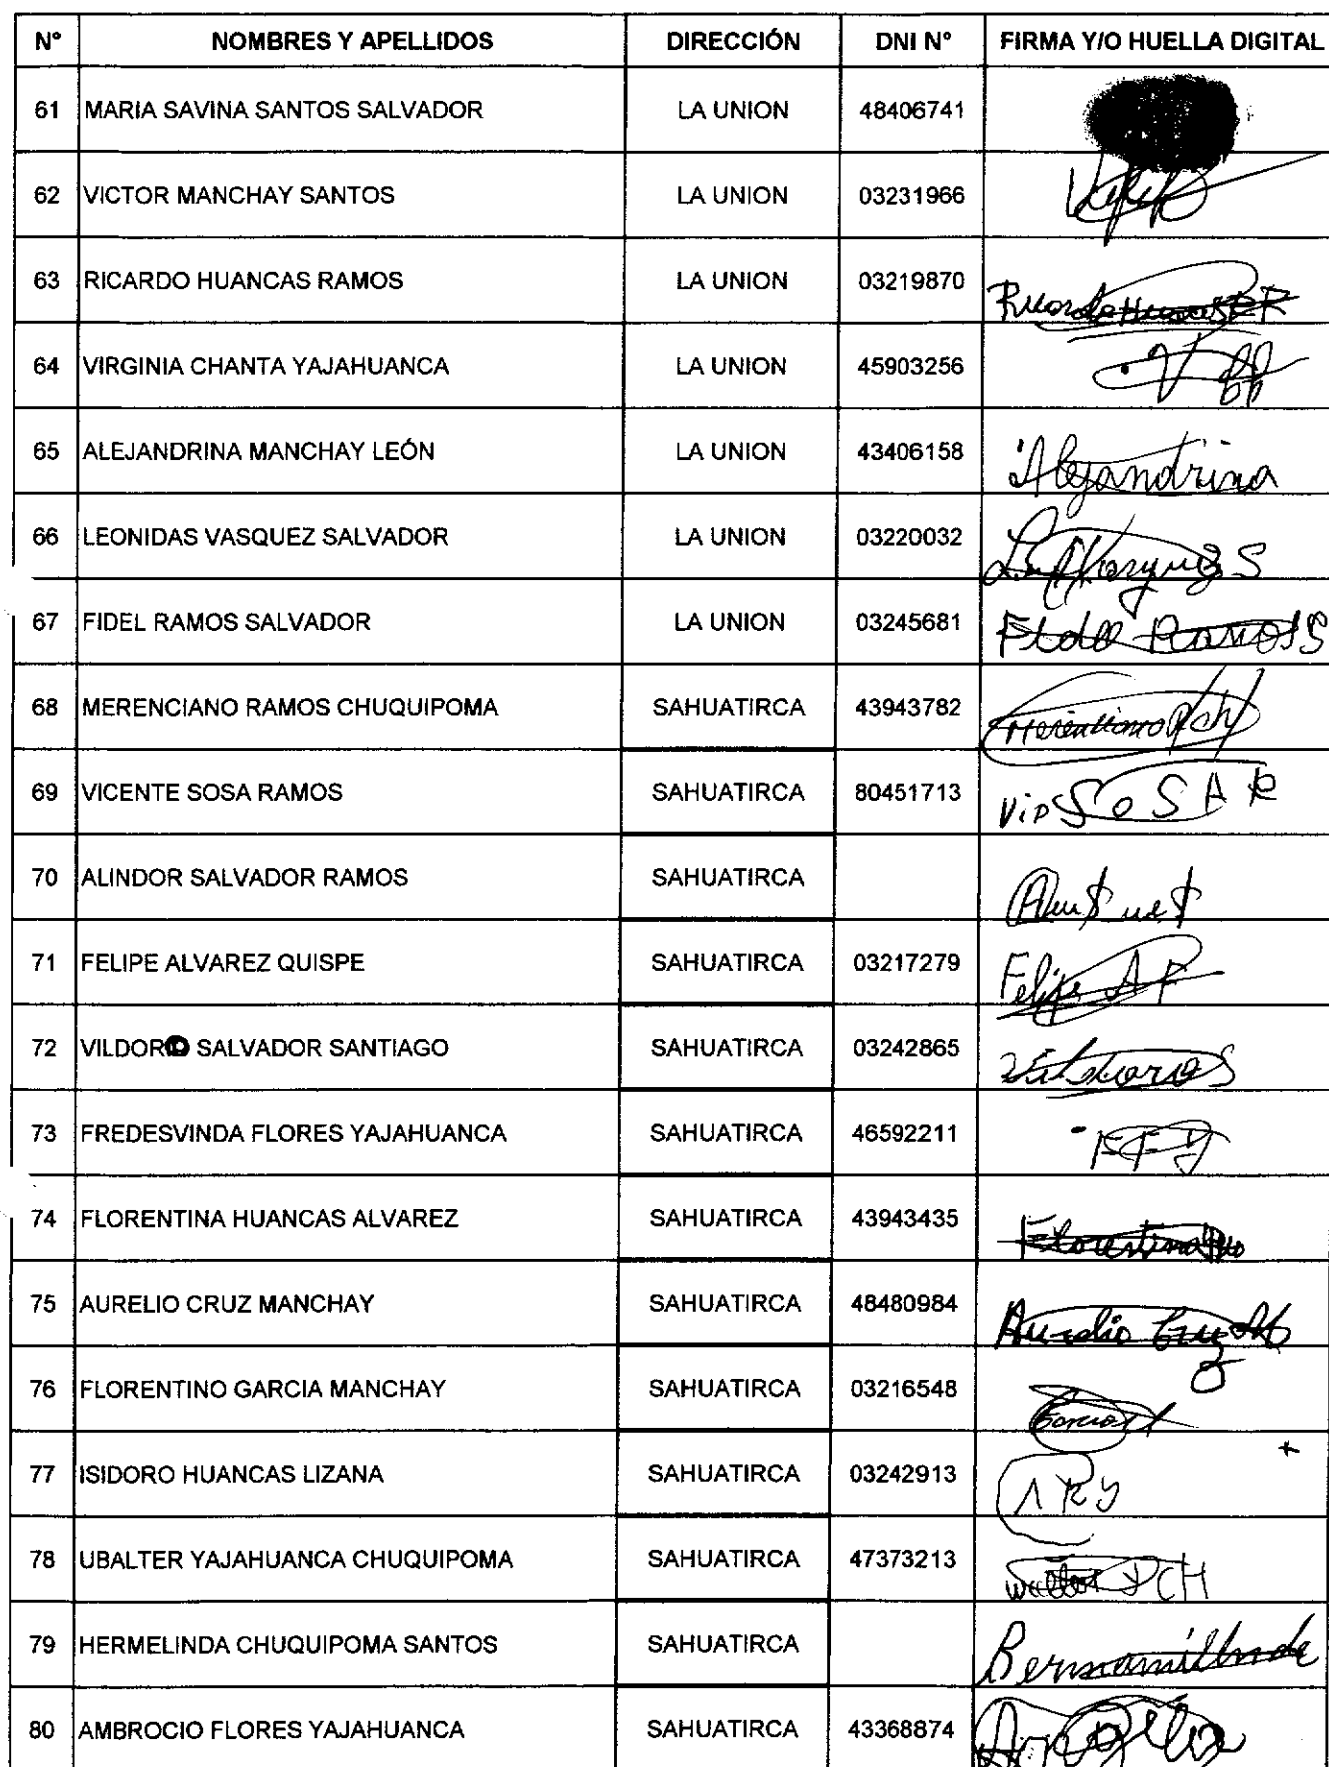 N° NOMBRES Y APELLIDOS DIRECCIÓN DNI N° FIRMA Y/O HUELLA DIGITAL
61 MARIA SAVINA SANTOS SALVADOR LA UNION 48406741
62 VICTOR MANCHAY SANTOS LA UNION 03231966
63 RICARDO HUANCAS RAMOS LA UNION 03219870
64 VIRGINIA CHANTA YAJAHUANCA LA UNION 45903256
65 ALEJANDRINA MANCHAY LEÓN LA UNION 43406158 Alejandrina
66 LEONIDAS VASQUEZ SALVADOR LA UNION 03220032
67 FIDEL RAMOS SALVADOR LA UNION 03245681
68 MERENCIANO RAMOS CHUQUIPOMA SAHUATIRCA 43943782
69 VICENTE SOSA RAMOS SAHUATIRCA 80451713 SOSA R
70 ALINDOR SALVADOR RAMOS SAHUATIRCA
71 FELIPE ALVAREZ QUISPE SAHUATIRCA 03217279 Felipe
72 VILDORO SALVADOR SANTIAGO SAHUATIRCA 03242865
73 FREDESVINDA FLORES YAJAHUANCA SAHUATIRCA 46592211 FFY
74 FLORENTINA HUANCAS ALVAREZ SAHUATIRCA 43943435 Florentina
75 AURELIO CRUZ MANCHAY SAHUATIRCA 48480984 Aurelio Cruz M
76 FLORENTINO GARCIA MANCHAY SAHUATIRCA 03216548
77 ISIDORO HUANCAS LIZANA SAHUATIRCA 03242913
78 UBALTER YAJAHUANCA CHUQUIPOMA SAHUATIRCA 47373213
79 HERMELINDA CHUQUIPOMA SANTOS SAHUATIRCA
80 AMBROCIO FLORES YAJAHUANCA SAHUATIRCA 43368874